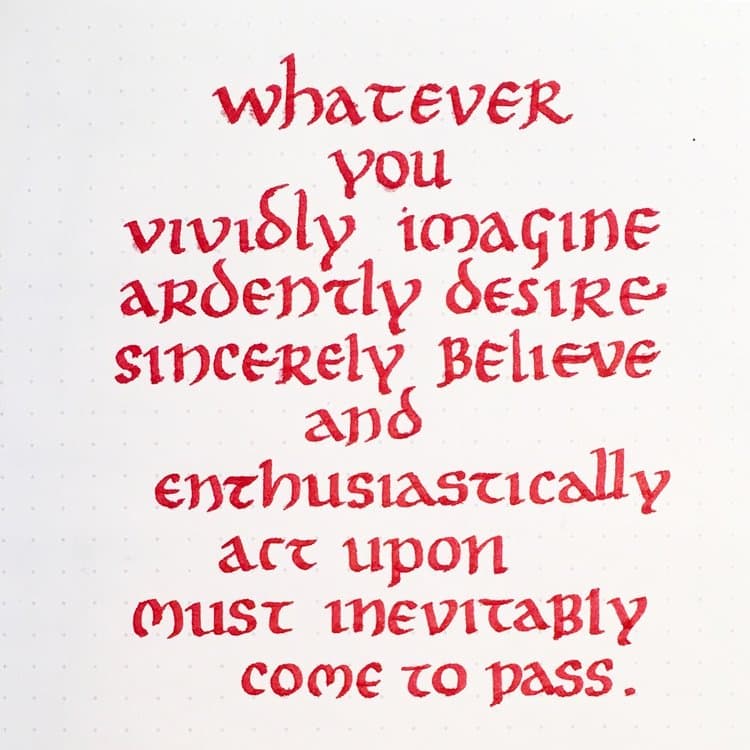 whatever
you
vividly imagine
ardently desire
sincerely believe
and
enthusiastically
act upon
must inevitably
come to pass.